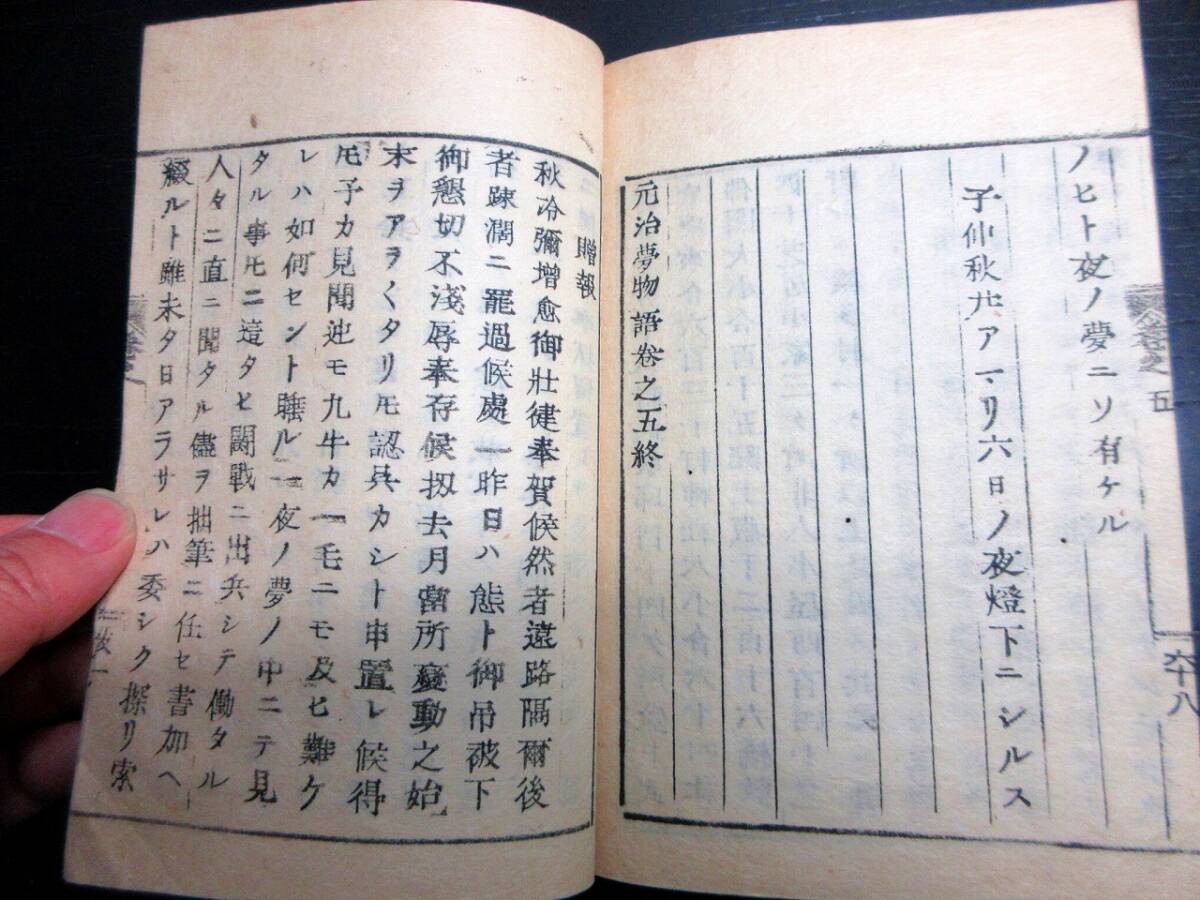 ノヒト夜ノ夢ニソ有ケル
子仲秋廿アマリ六日ノ夜燈下ニシルス
元治夢物語卷之五終
卷之五
六十八
贈報
秋冷彌增愈御壯健奉賀候然者遠路隔爾後
者疎濶ニ罷過候處一昨日ハ態ト御吊被下
御懇切不淺辱奉存候扨去月當所變動之始
末ヲアラ〱タリ𪜈認具カシト申置レ候得
𪜈予カ見聞迚モ九牛カ一毛ニモ及ヒ難ケ
レハ如何セント雖ル一夜ノ夢ノ中ニテ見
タル事𪜈ニ這タヒ闘戰ニ出兵シテ働タル
人々ニ直ニ聞タル儘ヲ拙筆ニ任セ書加ヘ
綴ルト雖未タ日アラサレハ委シク探リ索
跋一